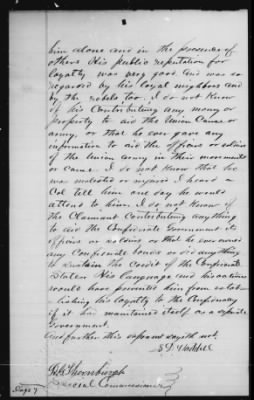 him alone and in the presence of
others His public reputation for
loyalty was very good and was so
regarded by his loyal neighbors and
by the rebels too. I do not know
of his Contributing any money or
property to aid the Union Cause or
army, or that he ever gave any
information to aid the officers or soldiers
of the Union army in their movements
or cause. I do not know that he
was molested or injured I heard a
Col tell him one day he would
attend to him. I do not know of
the Claimant Contributing anything
to aid the Confederate Government its
officers or soldiers or that he ever owned
any Confederate bonds or did anything
to sustain the Credit of the Confederate
States His language and his actions
would have prevented him from estab
-lishing his loyalty to the Confederacy
if it had maintained itself as a separate
Government.
And further this deponent sayeth not.
Thornburgh
Special Commissioner
Page 7